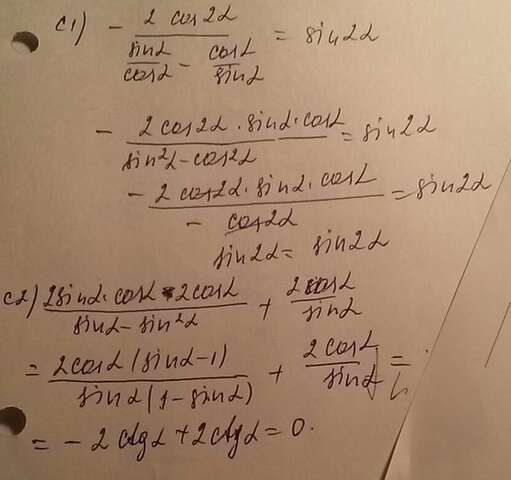 C1) - 2 cos2α / (sinα/cosα - cosα/sinα) = sin2α
- 2cos2α · sinα · cosα / (sin²α - cos2α) = sin2α
- 2cos2α · sinα · cosα / (- cos2α) = sin2α
sin2α = sin2α
C2) (2sinα · cosα - 2cosα) / (sinα - sin²α) + 2cosα / sinα
= 2cosα (sinα - 1) / (sinα (1 - sinα)) + 2cosα / sinα =
= - 2ctgα + 2ctgα = 0.